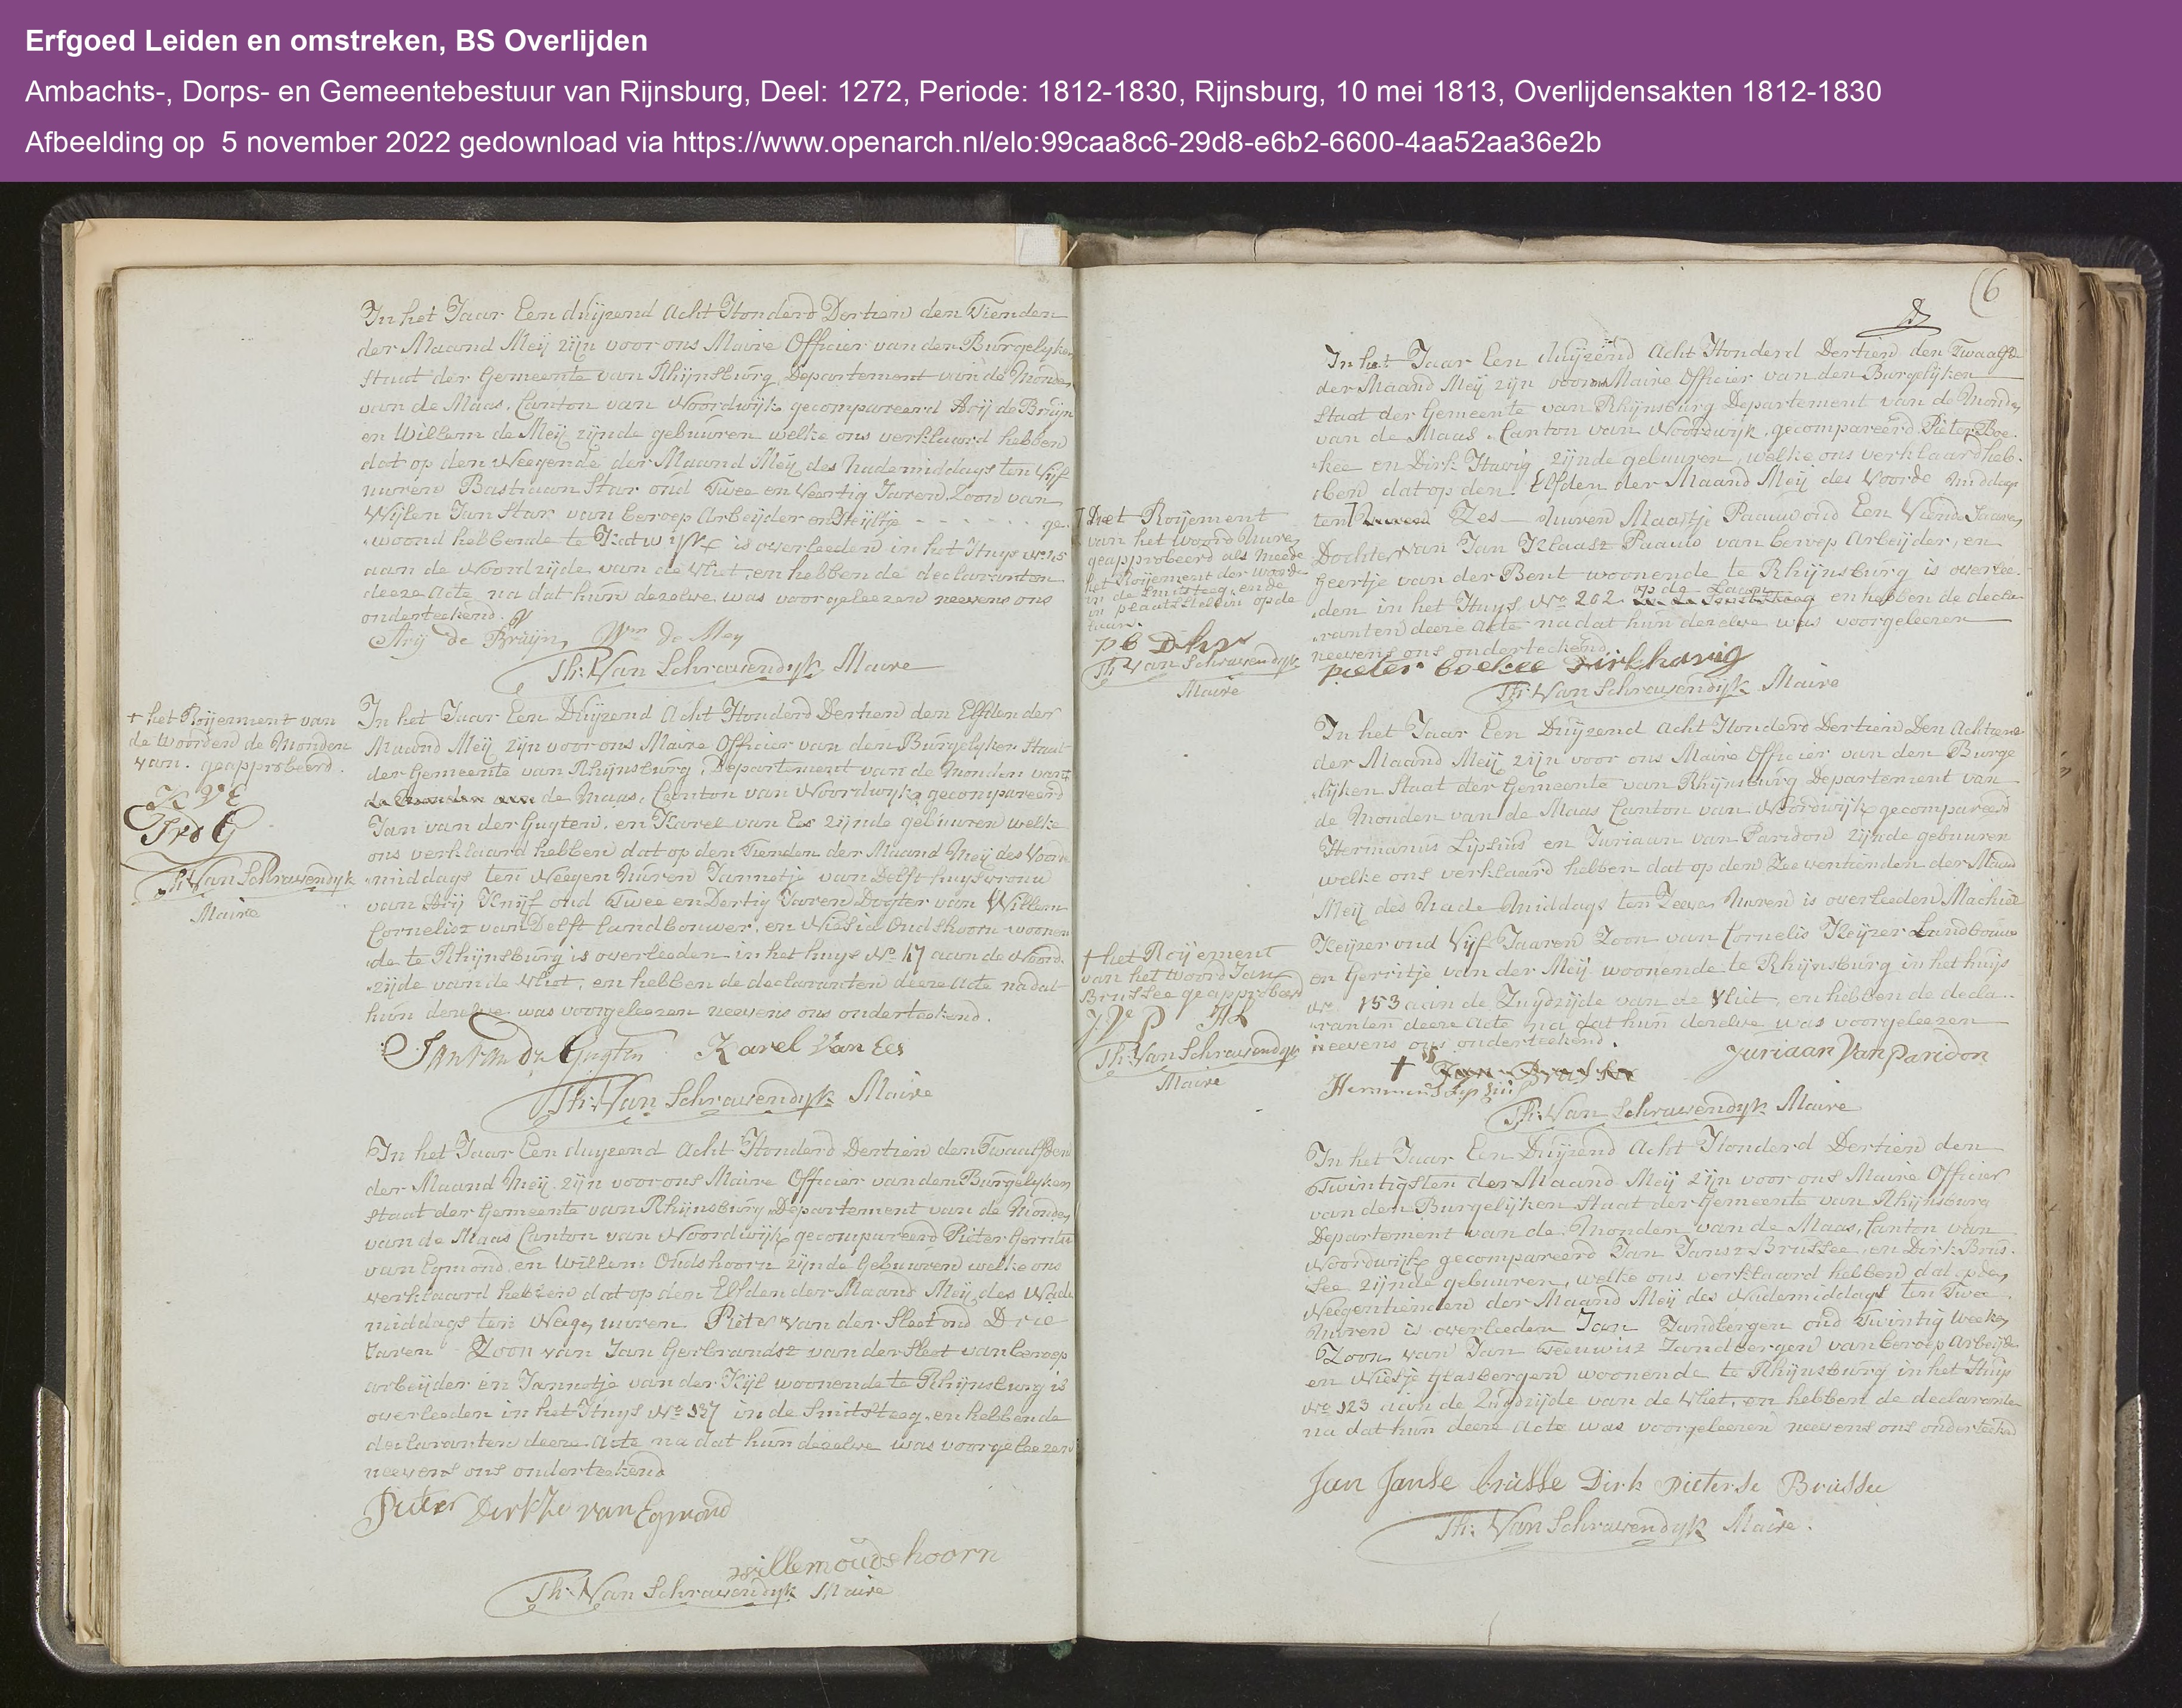 Erfgoed Leiden en omstreken, BS Overlijden
Ambachts-, Dorps- en Gemeentebestuur van Rijnsburg, Deel: 1272, Periode: 1812-1830, Rijnsburg, 10 mei 1813, Overlijdensakten 1812-1830
Afbeelding op 5 november 2022 gedownload via https://www.openarch.nl/elo:99caa8c6-29d8-e6b2-6600-4aa52aa36e2b
In het Jaar Een duijzend Acht Honderd Dertien den Tienden
der Maand Meij zijn voor ons Maire Officier van den Burgelyken
Staat der Gemeente van Rhijnsburg Departement van de Monden
van de Maas, Canton van Noordwijk gecompareerd Arij de Bruijn
en Willem de Meij zijnde gebuuren welke ons verklaard hebben
dat op den Neegende der Maand Meij des Nademiddags ten Vijf
uuren Bastiaan Star oud Twee en Veertig Jaren Zoon van
Wijlen Jan Star van beroep Arbeijder en Heijltje - - - - - - ge-
woond hebbende te Katwijk is overleeden in het Huys No 15
aan de Noordzijde van de Vliet, en hebben de declaranten
deeze Acte na dat hun dezelve was voorgeleezen neevens ons
onderteekend.
Arij de Bruijn Wm De Mey
Th: Van Schravendyk Maire
+ het Roijement van
de woorden de Monden
van. geapprobeerd.
K V E
JvdG
Th: Van Schravendyk
Maire
In het Jaar Een Duijzend Acht Honderd Dertien den Elfden der
Maand Meij zijn voor ons Maire Officier van den Burgelyken Staat
der Gemeente van Rhijnsburg, Departement van de Monden van +
de Monden van de Maas, Canton van Noordwyk gecompareerd
Jan van der Gugten, en Karel van Es zijnde gebuuren welke
ons verklaard hebben dat op den Tienden der Maand Meij des Voorde
middags ten Neegen Uuren Jannetje van Delft huysvrouw
van Arij Knijf oud Twee en Dertig Jaren Dogter van Willem
Cornelisz van Delft Landbouwer, en Niesia Oudshoorn woonen
de te Rhijnsburg is overleeden in het huys No 17 aan de Noord-
zijde van de Vliet, en hebben de declaranten deeze Acte na dat
hun dezelve was voorgeleezen neevens ons onderteekend.
Jan van Dr Gugten Karel Van Ees
Th: Van Schravendyk Maire
In het Jaar Een duyzend Acht Honderd Dertien den Twaalfden
der Maand Meij zijn voor ons Maire Officier van den Burgelyken
Staat der Gemeente van Rhijnsburg Departement van de Monden
van de Maas Canton van Noordwijk gecompareerd Pieter Gerritse
van Egmond en Willem Oudshoorn zijnde Gebuuren welke ons
verklaard hebben dat op den Elfden der Maand Meij des Nade
middags ten Neegen uuren Pieter van der Sleet oud Drie
Jaren Zoon van Jan Gerbrandsz van der Sleet van beroep
arbeijder en Jannetje van der Kijl woonende te Rhijnsburg is
overleeden in het Huys No 137 in de Smitsteeg, en hebben de
declaranten deeze Acte na dat hun dezelve was voorgeleezen
neevens ons onderteekend
Pieter Dirkse van Egmond
willem oudshoorn
Th: Van Schravendyk Maire
6
Het Roijement
van het woord Uuren
geapprobeerd als meede
het Roijement der woorden
in de Smitsteeg, en de
in plaatstellin op de
laan.
PB DH
Th Van Schravendyk
Maire
In het Jaar Een duijzend Acht Honderd Dertien den Twaalfde
der Maand Meij zijn voor ons Maire Officier van den Burgelijken
Staat der Gemeente van Rhijnsburg Departement van de Monden
van de Maas, Canton van Noordwijk, gecompareerd Pieter Boe-
kee en Dirk Havig zijnde gebuuren, welke ons verklaard heb-
ben dat op den Elfden der Maand Meij des Voorde middags
ten Uuren Zes uuren Maartje Paauw oud Een Jaaren
Dochter van Jan Klaasz Paauw van beroep Arbeijder, en
Geertje van der Bent woonende te Rhijnsburg is overlee-
den in het Huys No 202 op de Laan in de Smitsteeg en hebben de decla-
ranten deeze Acte na dat hun dezelve was voorgeleezen
neevens ons onderteekend.
pieter boekee Dirk havig
Th: Van Schravendyk Maire
+ het Roijement
van het woord Jan
Brussee geapprobeerd
J V P HL
Th: Van Schravendyk
Maire
In het Jaar Een Duijzend Acht Honderd Dertien Den Achtiende
der Maand Meij zijn voor ons Maire Officier van den Burge
lijken Staat der Gemeente van Rhijnsburg Departement van
de Monden van de Maas Canton van Noordwijk gecompareerd
Hermanus Lipsius en Juriaan van Paridon zijnde gebuuren
welke ons verklaard hebben dat op den Zeeventienden der Maand
Meij des Nade Middags ten Zeeven Uuren is overleeden Machiel
Keijzer oud Vijf Jaaren Zoon van Cornelis Keijzer Landbouwer
en Gerritje van der Meij woonende te Rhijnsburg in het huijs
No 153 aan de Zuydzijde van de Vliet, en hebben de decla-
ranten deeze Acte na dat hun dezelve was voorgeleezen
neevens ons onderteekend.
+ Jan Brussee
Juriaan Van Paridon
Hermanus Lipsius
Th: Van Schravendyk Maire
In het Jaar Een Duijzend Acht Honderd Dertien den
Twintigsten der Maand Meij zijn voor ons Maire Officier
van den Burgelijken Staat der Gemeente van Rhijnsburg
Departement van de Monden van de Maas, Canton van
Noordwijk gecompareerd Jan Jansz Brussee, en Dirk Brus-
see zijnde gebuuren, welke ons verklaard hebben dat op den
Neegentienden der Maand Meij des Nademiddags ten Twee
Uuren is overleeden Jan Zandbergen oud Twintig Weeken
Zoon van Jan Teeuwisz Zandbergen van beroep Arbeijder
en Niesje Glasbergen woonende te Rhijnsburg in het Huys
No 123 aan de Zuydzijde van de Vliet, en hebben de declaranten
na dat hun deeze Acte was voorgeleezen neevens ons onderteekend
Jan Janse brusse Dirk Pieterse Brussee
Th: Van Schravendyk Maire.